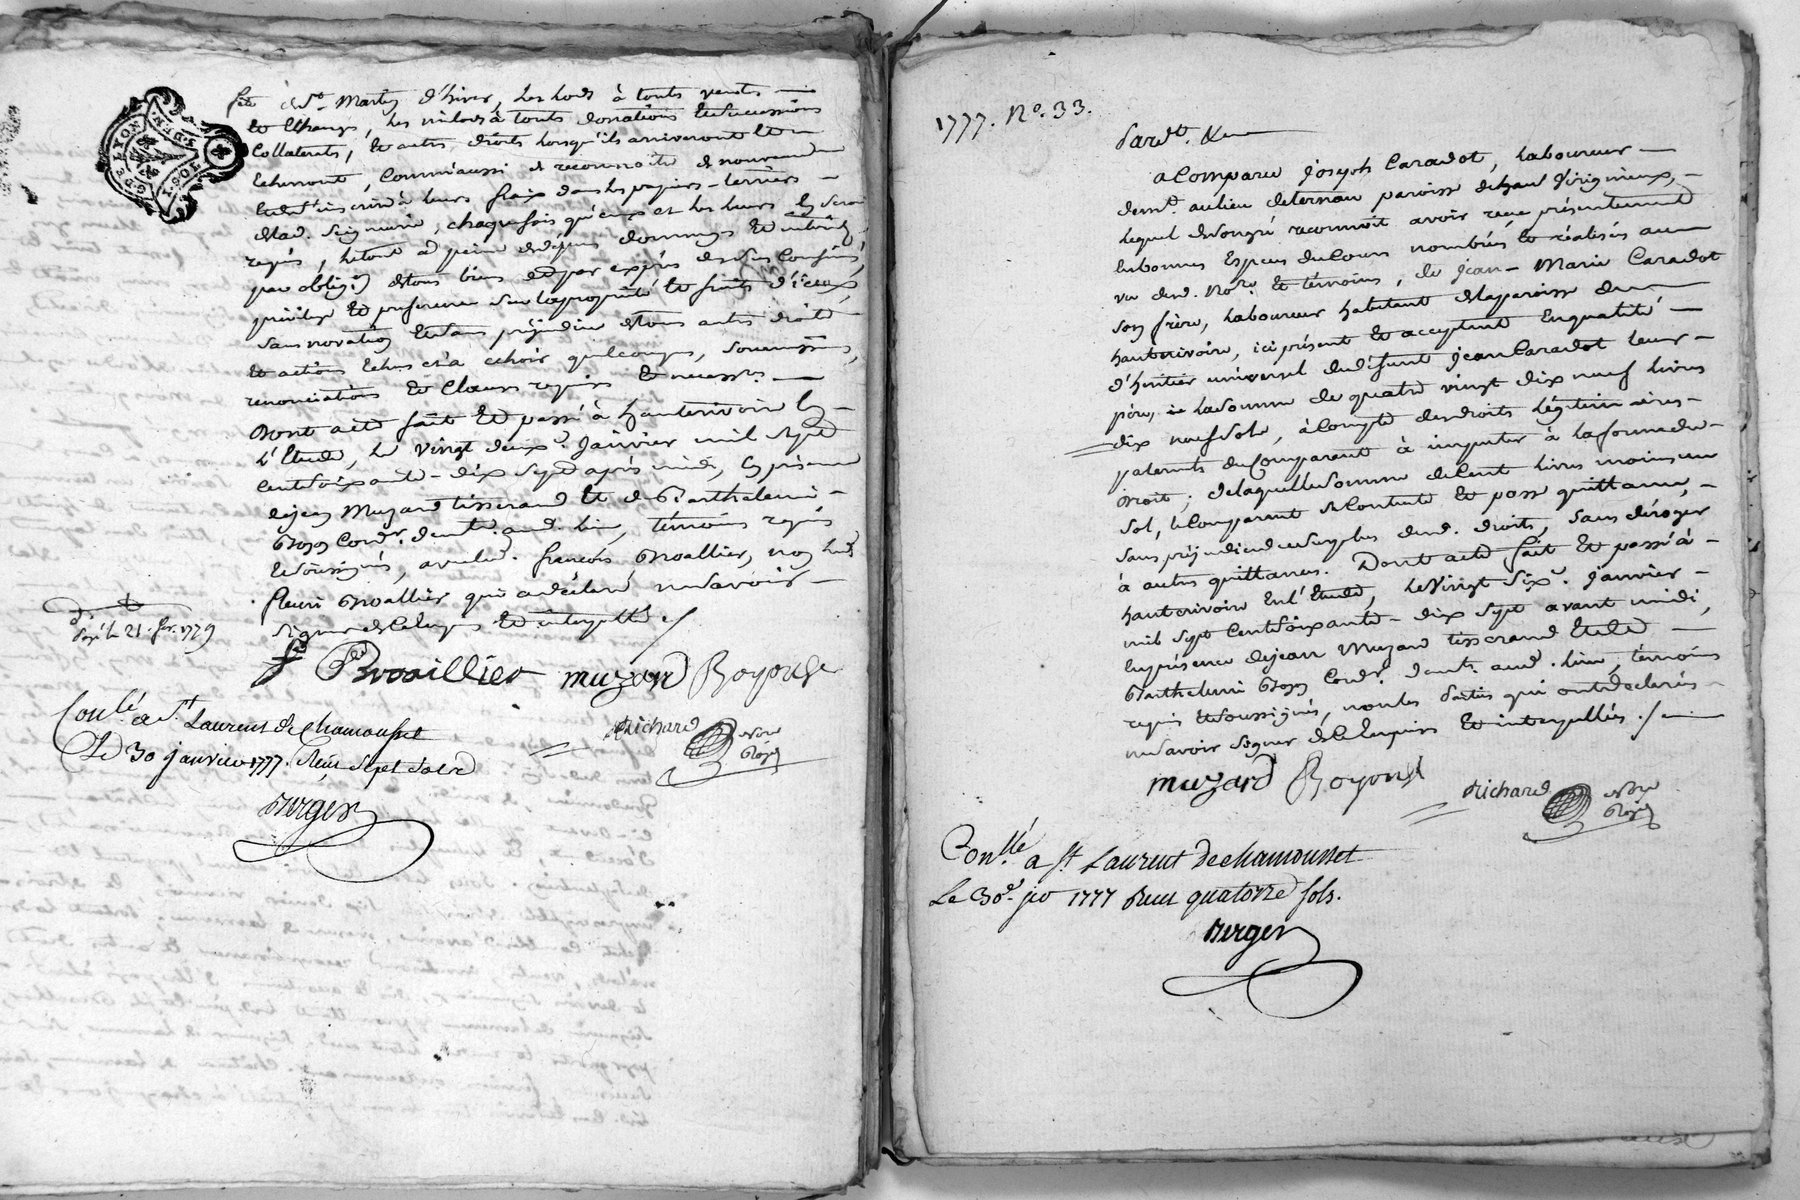 GDE LYON
fete de St. Martin d'hiver, les lods à touts vents
et Echanges, les milods à touts donnations et successions
Collaterals, et autres droits lorsqu'ils arriveront et
Echerront, comm'aussi de reconnoitre de nouveau
à leurs fraix dans les papiers-terriers
de lad. Seigneurie, chaque fois qu'eux et les leurs en seront
requis, le tout à peine de dépens dommages et interets,
par oblig.on de tous biens et par exprès des dits confinés,
privilege et preference sur la propriété et fruits d'iceux,
sans novation et sans préjudice de tous autres droits
et actions echus et à echoir quelconques, soumissions,
renonciations et clauses requises et necess.res
Dont acte fait et passé à hauterivoire en
l'Etude, le vingt deux.e janvier mil sept
cent soixante-dix sept après midi, en présence
de jean Muzard tisserand et de Barthelemi
Cord.r dem.t aud. lieu, témoins requis
et soussignés, avec led. françois Broallier, non led.
fleuri Broallier qui a déclaré ne savoir
signer de ce enquis et interpellé ./.
Exp. le 21. fer. 1779
f Broaillier muzard Royonse
Richard
Con.lé a St Laurent de Chamousset
Le 30 janvier 1777. Reçu sept sols
Berger
1777. N.o 33.
Pardt. &
a Comparu Joseph Caradot, Laboureur
dem.t au lieu de ternau paroisse de haut Virigneux,
lequel de son gré reconnoit avoir reçu présentement
en bonnes Especes du Cours nombrées et réalisées au
vu dud. No.re et témoins, de Jean-Marie Caradot
son frère, Laboureur habitant de la paroisse de
hauterivoire, ici présent et acceptant En qualité
d'heritier universel de défunt Jean Caradot leur
père, la somme de quatre vingt dix neuf livres
dix neuf sols, à Compte des droits légitimaires
paternels du Comparant à imputer à la forme du
droit; de laquelle somme de Cent livres moins un
sol, le Comparant se Contente et passe quittance,
sans préjudice du surplus desd. droits, sans déroger
à autres quittances. Dont acte fait et passé à
hauterivoire En l'Etude, le Vingt Six.e Janvier
mil sept Cent soixante-dix sept avant midi,
En présence de jean Muzard tisserand et de
Barthelemi Cord.r dem.t aud. lieu, témoins
requis et soussignés, non les parties qui ont déclarés
ne savoir signer de ce Enquis et interpellés ./.
muzard Royonse
Richard
Con.lé a St Laurent de chamousset
Le 30e. jer 1777 Reçu quatorze sols.
Berger